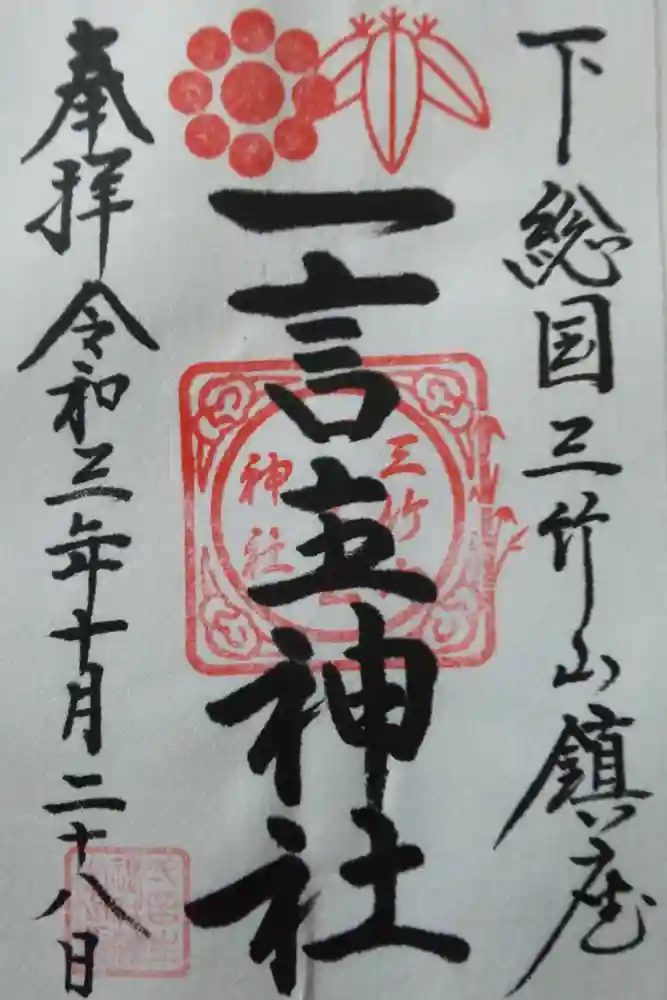 下総国三竹山鎮座
一言主神社
奉拝 令和三年十月二十八日
三竹
神社